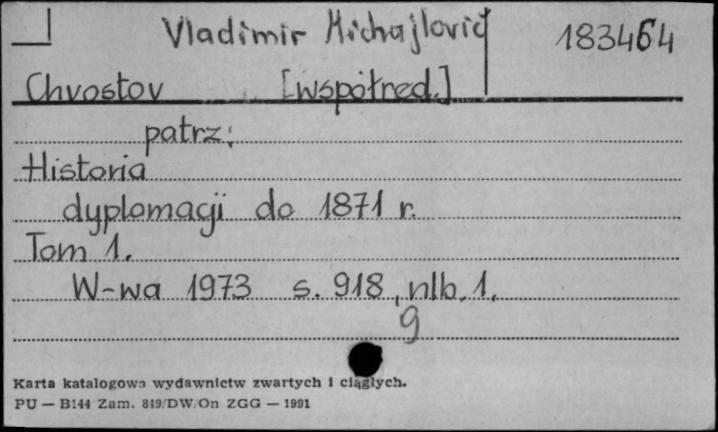 Vladimir Michajlovič 183464
Chvostov [współred.]
patrz:
Historia
dyplomacji do 1871 r.
Tom 1.
W-wa 1973 s. 918, nlb. 1.
9
Karta katalogowa wydawnictw zwartych i ciągłych.
PU — B144 Zam. 849/DW/On ZGG — 1991